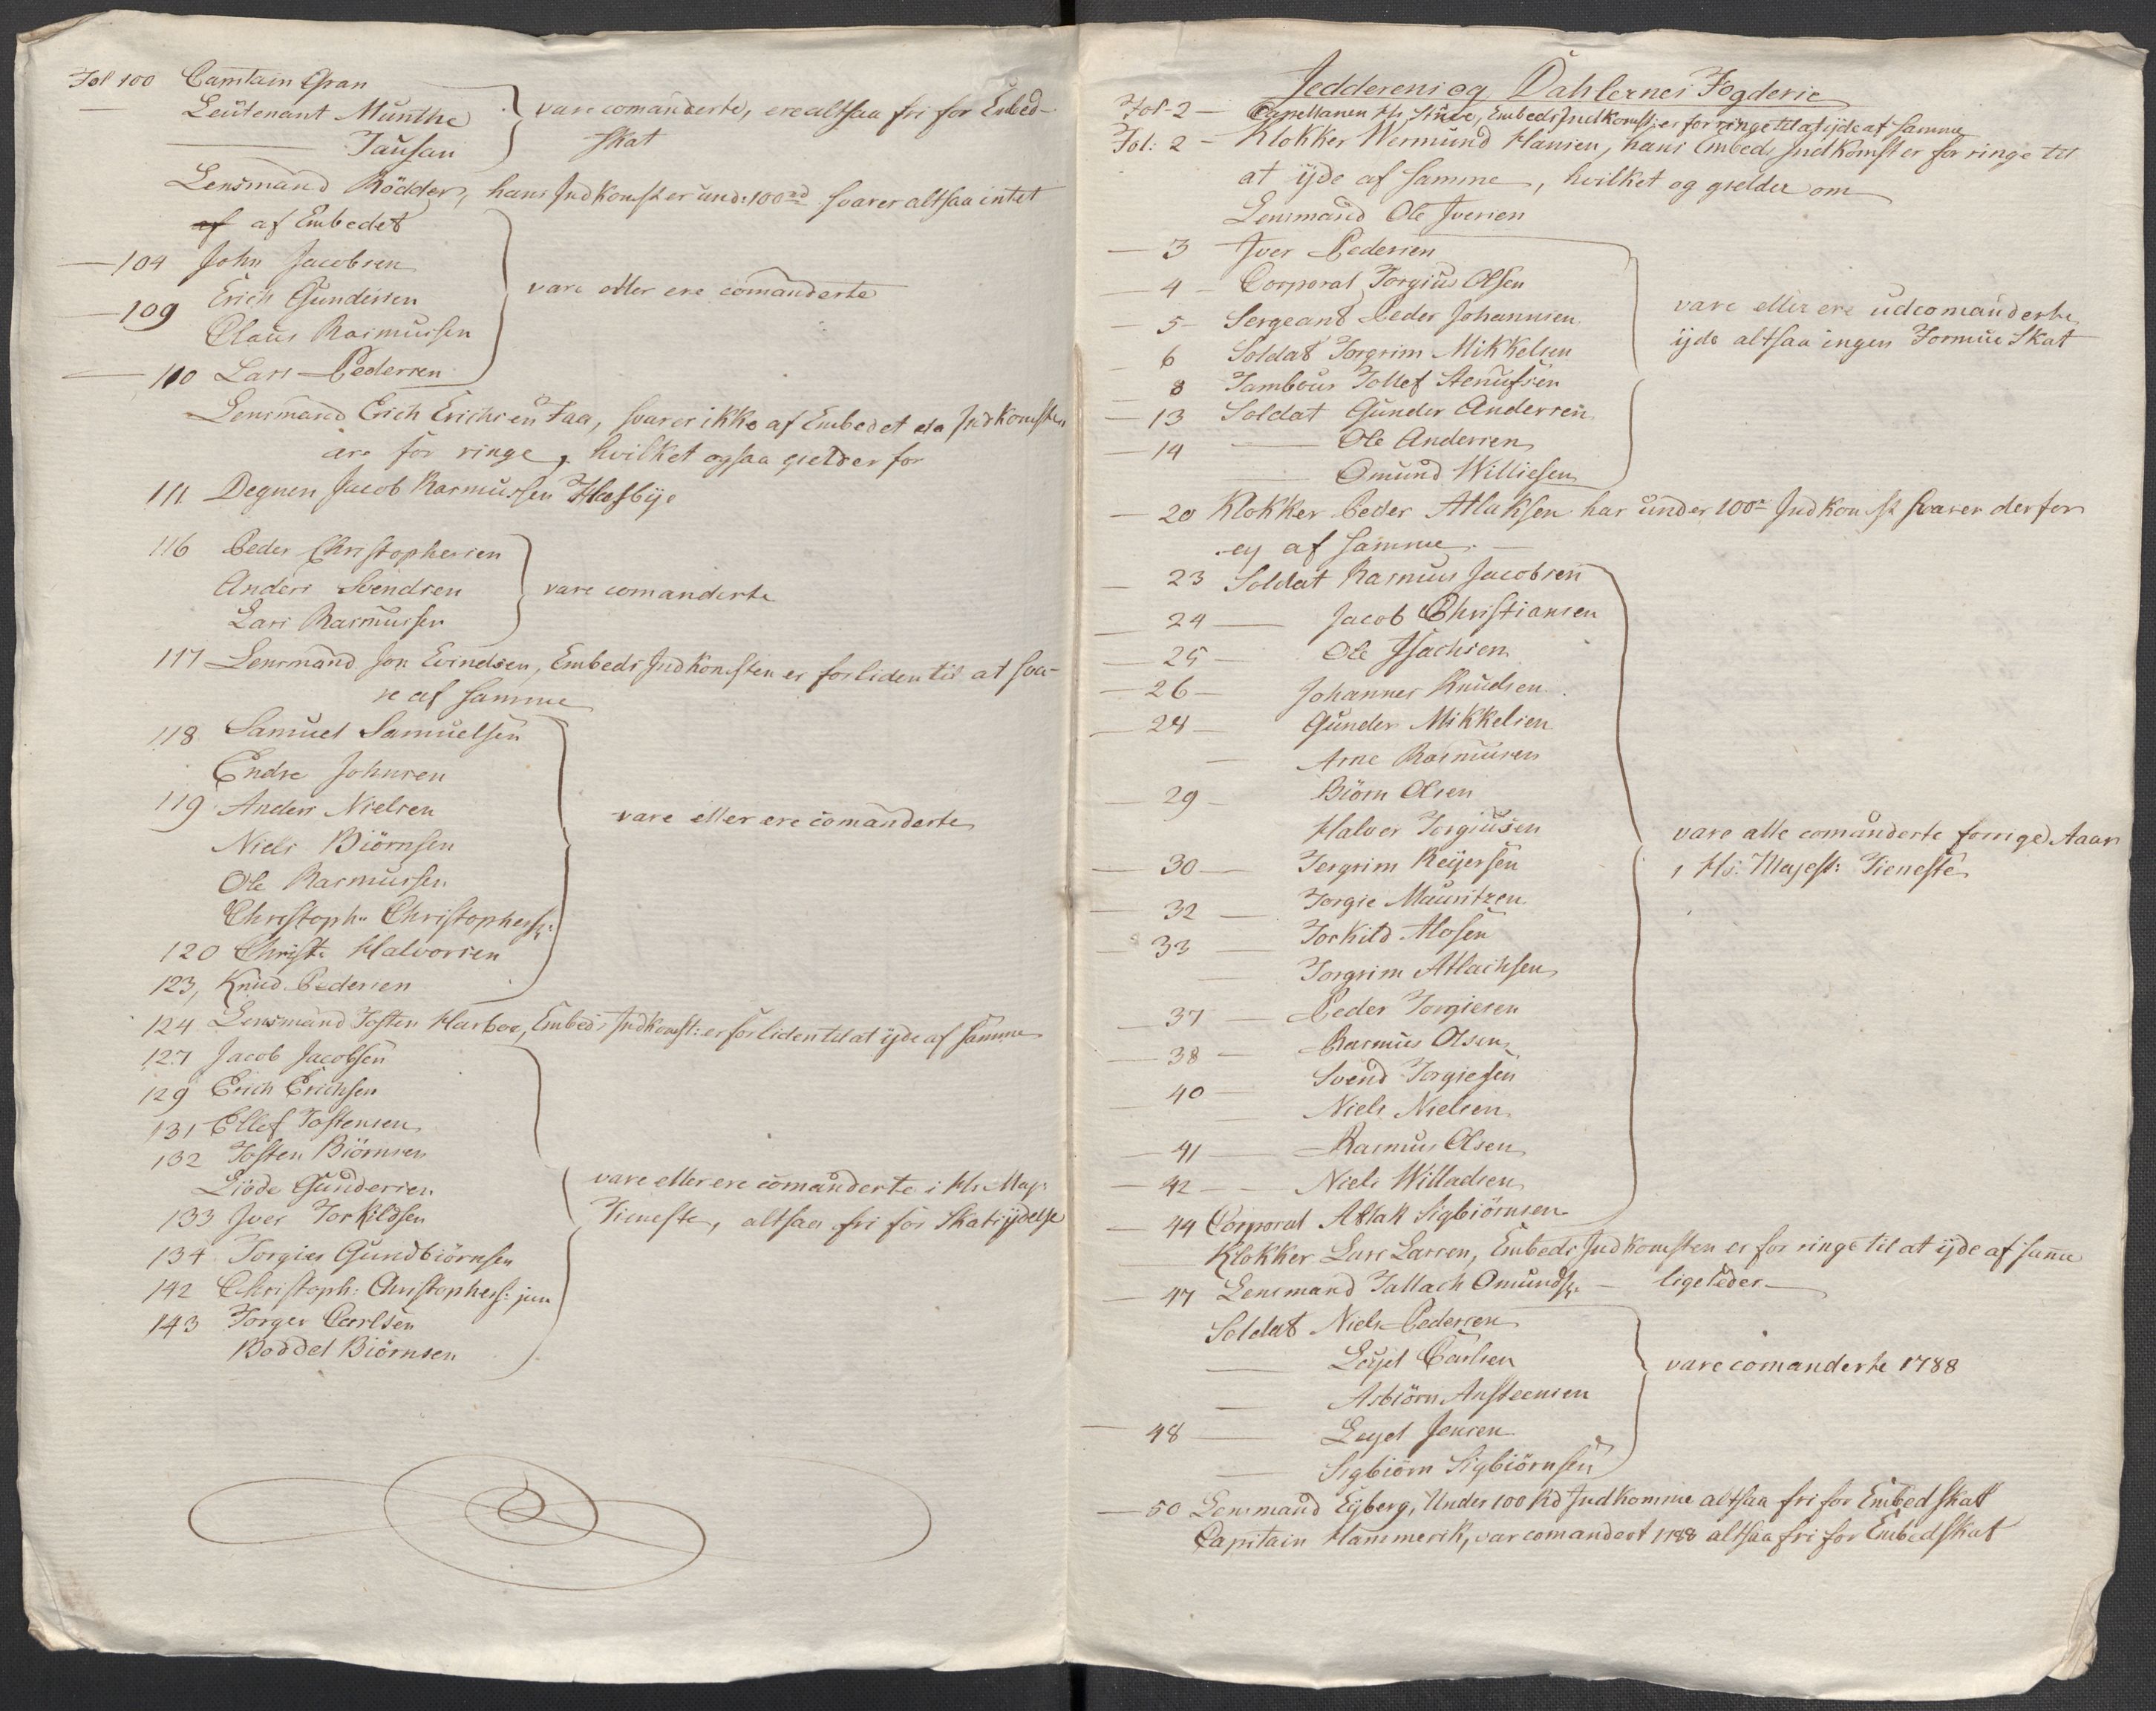 Fol 100 Capitain Gran
— Leutenant Munthe } vare comanderte, ere altsaa fri for Embed-
— Tausan skat
Lensmand Rödder, hans Indkomst er und: 100 rd svarer altsaa intet
af af Embedet
— 104 John Jacobsen
— 109 Erich Gundersen vare eller ere comanderte
Claus Rasmussen
— 110 Lars Pedersen
Lensmand Erich Erichsen Faa, svarer ikke af Embedet da Indkomsten
ere for ringe, hvilket ogsaa gielder for
111 Degnen Jacob Rasmussen
116 Peder Christophersen
Anders Svendsen } vare comanderte
Lars Rasmussen
117 Lensmand Jon Evindsen, Embeds Indkomsten er for liden til at sva-
re af samme
118 Samuel Samuelsen
Endre Johnsen
119 Anders Nielsen
vare eller ere comanderte
Niels Biörnsen
Ole Rasmussen
Christoph: Christophers:
120 Christ: Halvorsen
123, Knud Pedersen
124 Lensmand Tosten Harboe, Embeds Indkomst: er for liden til at yde af samme
127 Jacob Jacobsen
129 Erich Erichsen
131 Ellef Tostensen
132 Tosten Biörnsen
Liöde Gundersen vare eller ere comanderte i Hs May:
133 Iver Torkildsen Tieneste, altsaa fri for Skats ydelse
134 Torgies Gundbiörnsen
142 Christoph: Christophers: jun
143 Torger Carlsen
Boddel Biörnsen
Jedderens og Dahlernes Fogderie
Fol- 2 — Capellanen Hr. Embeds Indkomst: er for ringe til at yde af samme
Fol: 2 – Klokker Wermund Hansen, hans Embeds Indkomst er for ringe til
at yde af samme, hvilket og gielder om
Lensmand Ole Iversen
— 3 Iver Pedersen
— 4 – Corporal Torgius Olsen
vare eller ere udcomanderte,
— 5 – Sergeant Peder Johannsen
yde altsaa ingen Formue Skat
— 6 Soldat Torgrim Mikkelsen
8 Tambour Tollef
— 13 Soldat Gunder Andersen
— 14 — Ole Andersen
— Omund Williesen
— 20 Klokker Peder Atlaksen har under 100 rd Indkomst svarer derfor
ey af samme. —
— 23 Soldat Rasmus Jacobsen
— 24 — Jacob Christiansen
— 25 — Ole Isachsen
— 26 — Johannes Knudsen
— 24 — Gunder Mikkelsen
— Arne Rasmusen
— 29 – Biörn Olsen
Halvor Torgiusen vare alle comanderte forrige Aar
— 30 — Torgrim Reyersen i Hs: Mayest: Tieneste
— 32 — Torgie Mauritzen
— 33 — Torkild Alosen
— Torgrim Atlachsen
— 37 — Peder Torgiesen
— 38 — Rasmus Olsen
— 40 — Svend Torgiesen
— Niels Nielsen
— 41 — Rasmus Olsen
— 42 — Niels Willadsen
— 44 Corporal Atlak Sigbiörnsen
— Klokker Lars Larsen, Embeds Indkomsten er for ringe til at yde af same
— 47 Lensmand Tallach Omunds: — ligeleder —
Soldat Niels Pedersen
— Leyel Carlsen vare comanderte 1788
— Asbiörn Ansteensen
— 48 — Leyel Jensen
— Sigbiörn Sigbiörnsen
— 50 Lensmand Eyberg, Under 100 Rd Indkomme altsaa fri for Embedskat
Capitain Hammerik, var comandert 1788 altsaa fri for Embedskat